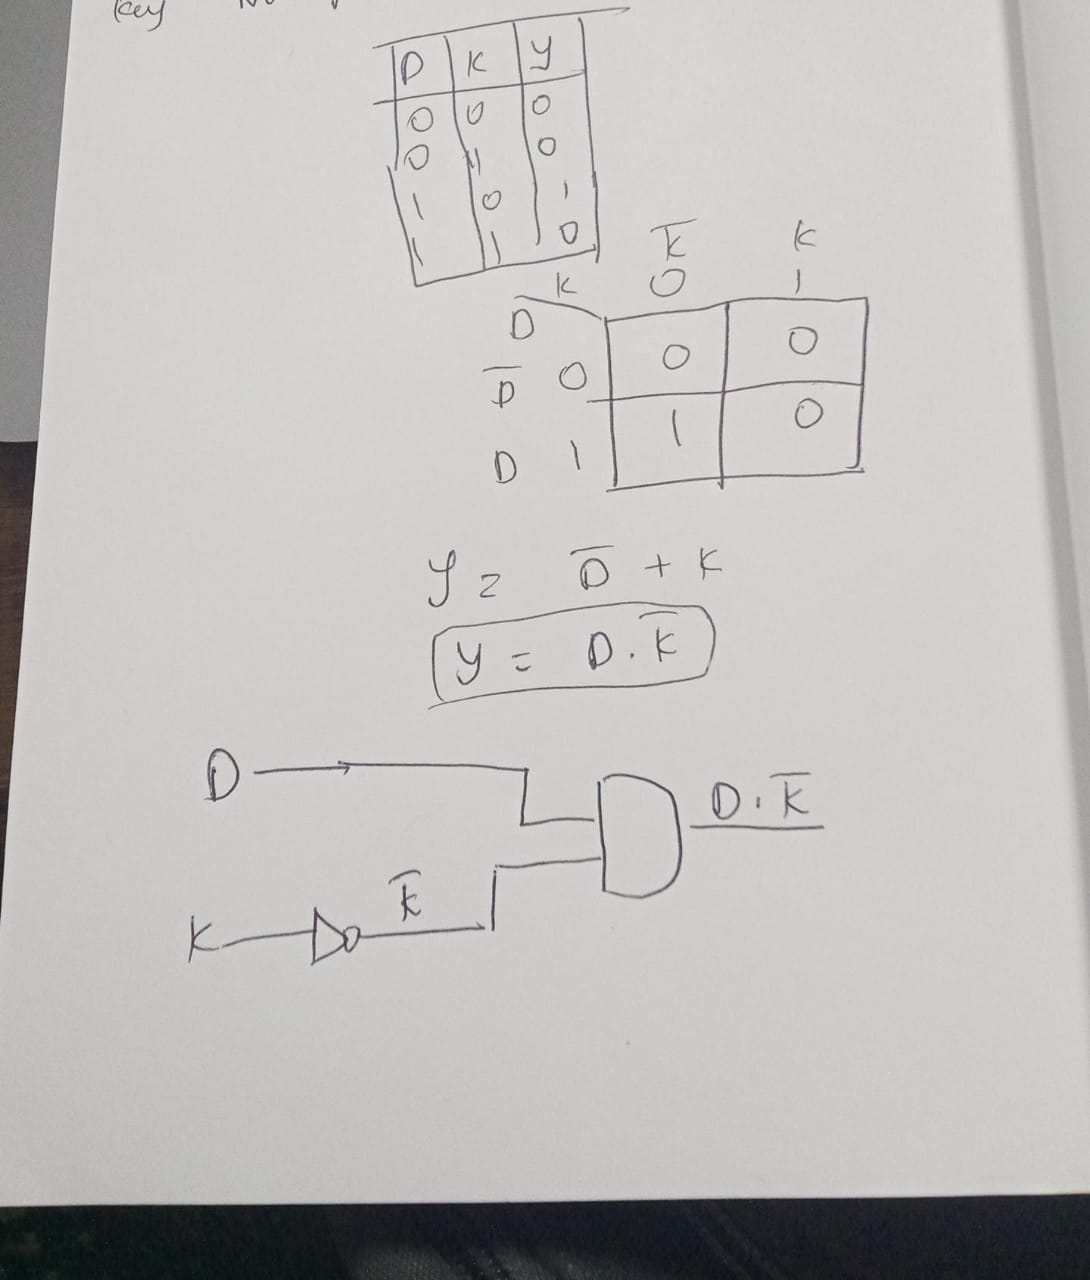 key
D K Y
0 0 0
0 1 0
1 0 1
1 1 0
K̅ K
K 0 1
D
D̅ 0 0 0
D 1 1 0
Y = D̅ + K
Y = D . K̅
D D . K̅
K̅
K